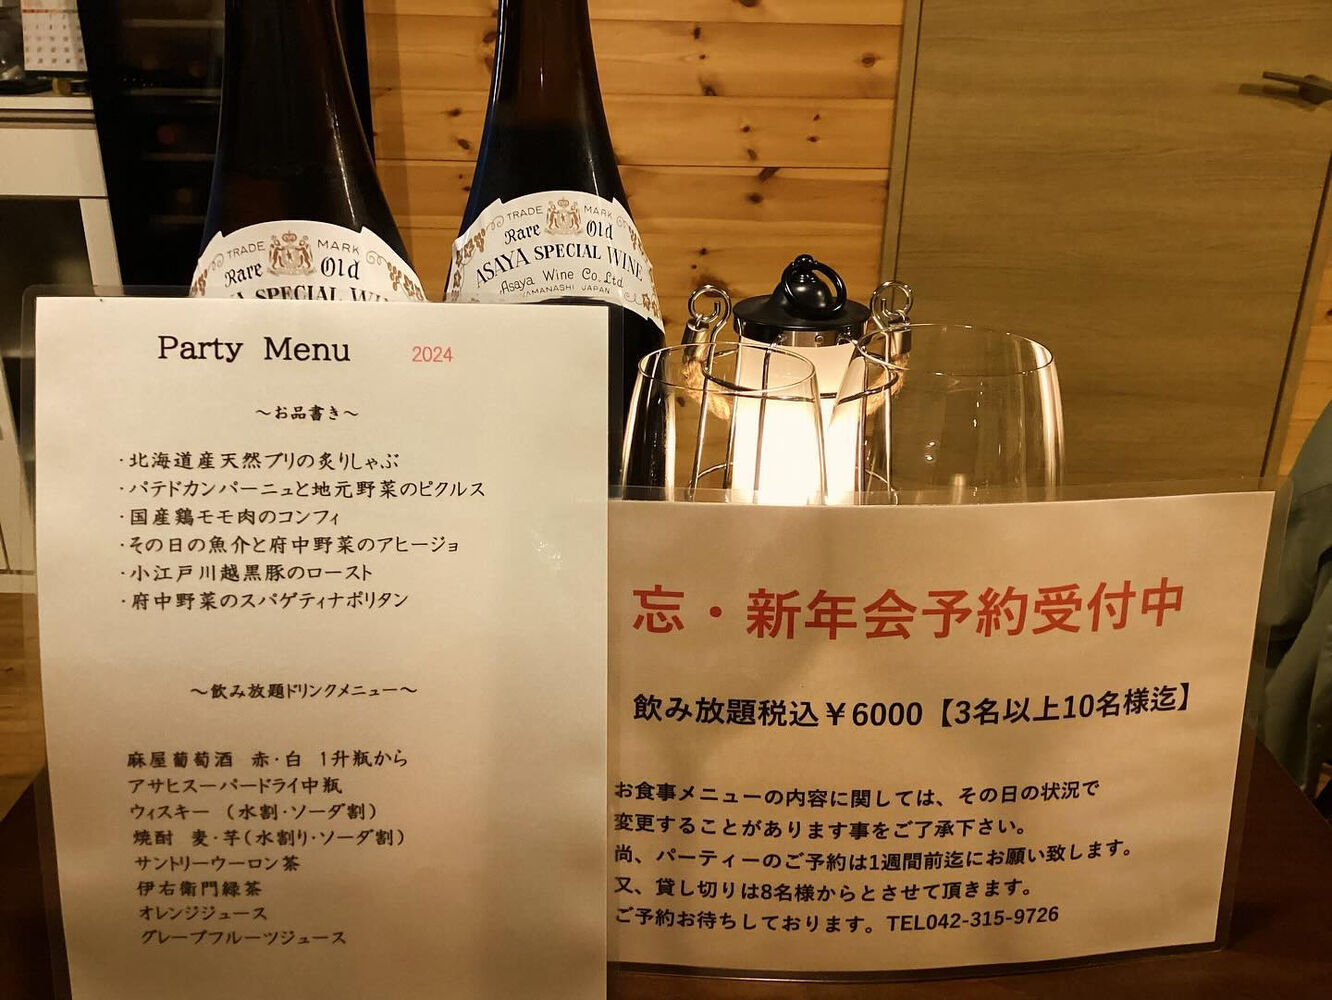 TRADE MARK
Rare Old
SPECIAL
TRADE MARK
Rare Old
ASAYA SPECIAL WINE
Asaya Wine Co.,Ltd
YAMANASHI JAPAN
Party Menu 2024
～お品書き～
・北海道産天然ブリの炙りしゃぶ
・パテドカンパーニュと地元野菜のピクルス
・国産鶏モモ肉のコンフィ
・その日の魚介と府中野菜のアヒージョ
・小江戸川越黒豚のロースト
・府中野菜のスパゲティナポリタン
～飲み放題ドリンクメニュー～
麻屋葡萄酒 赤・白 1升瓶から
アサヒスーパードライ中瓶
ウィスキー （水割・ソーダ割）
焼酎 麦・芋（水割り・ソーダ割）
サントリーウーロン茶
伊右衛門緑茶
オレンジジュース
グレープフルーツジュース
忘・新年会予約受付中
飲み放題税込￥6000【3名以上10名様迄】
お食事メニューの内容に関しては、その日の状況で
変更することがあります事をご了承下さい。
尚、パーティーのご予約は1週間前迄にお願い致します。
又、貸し切りは8名様からとさせて頂きます。
ご予約お待ちしております。TEL042-315-9726